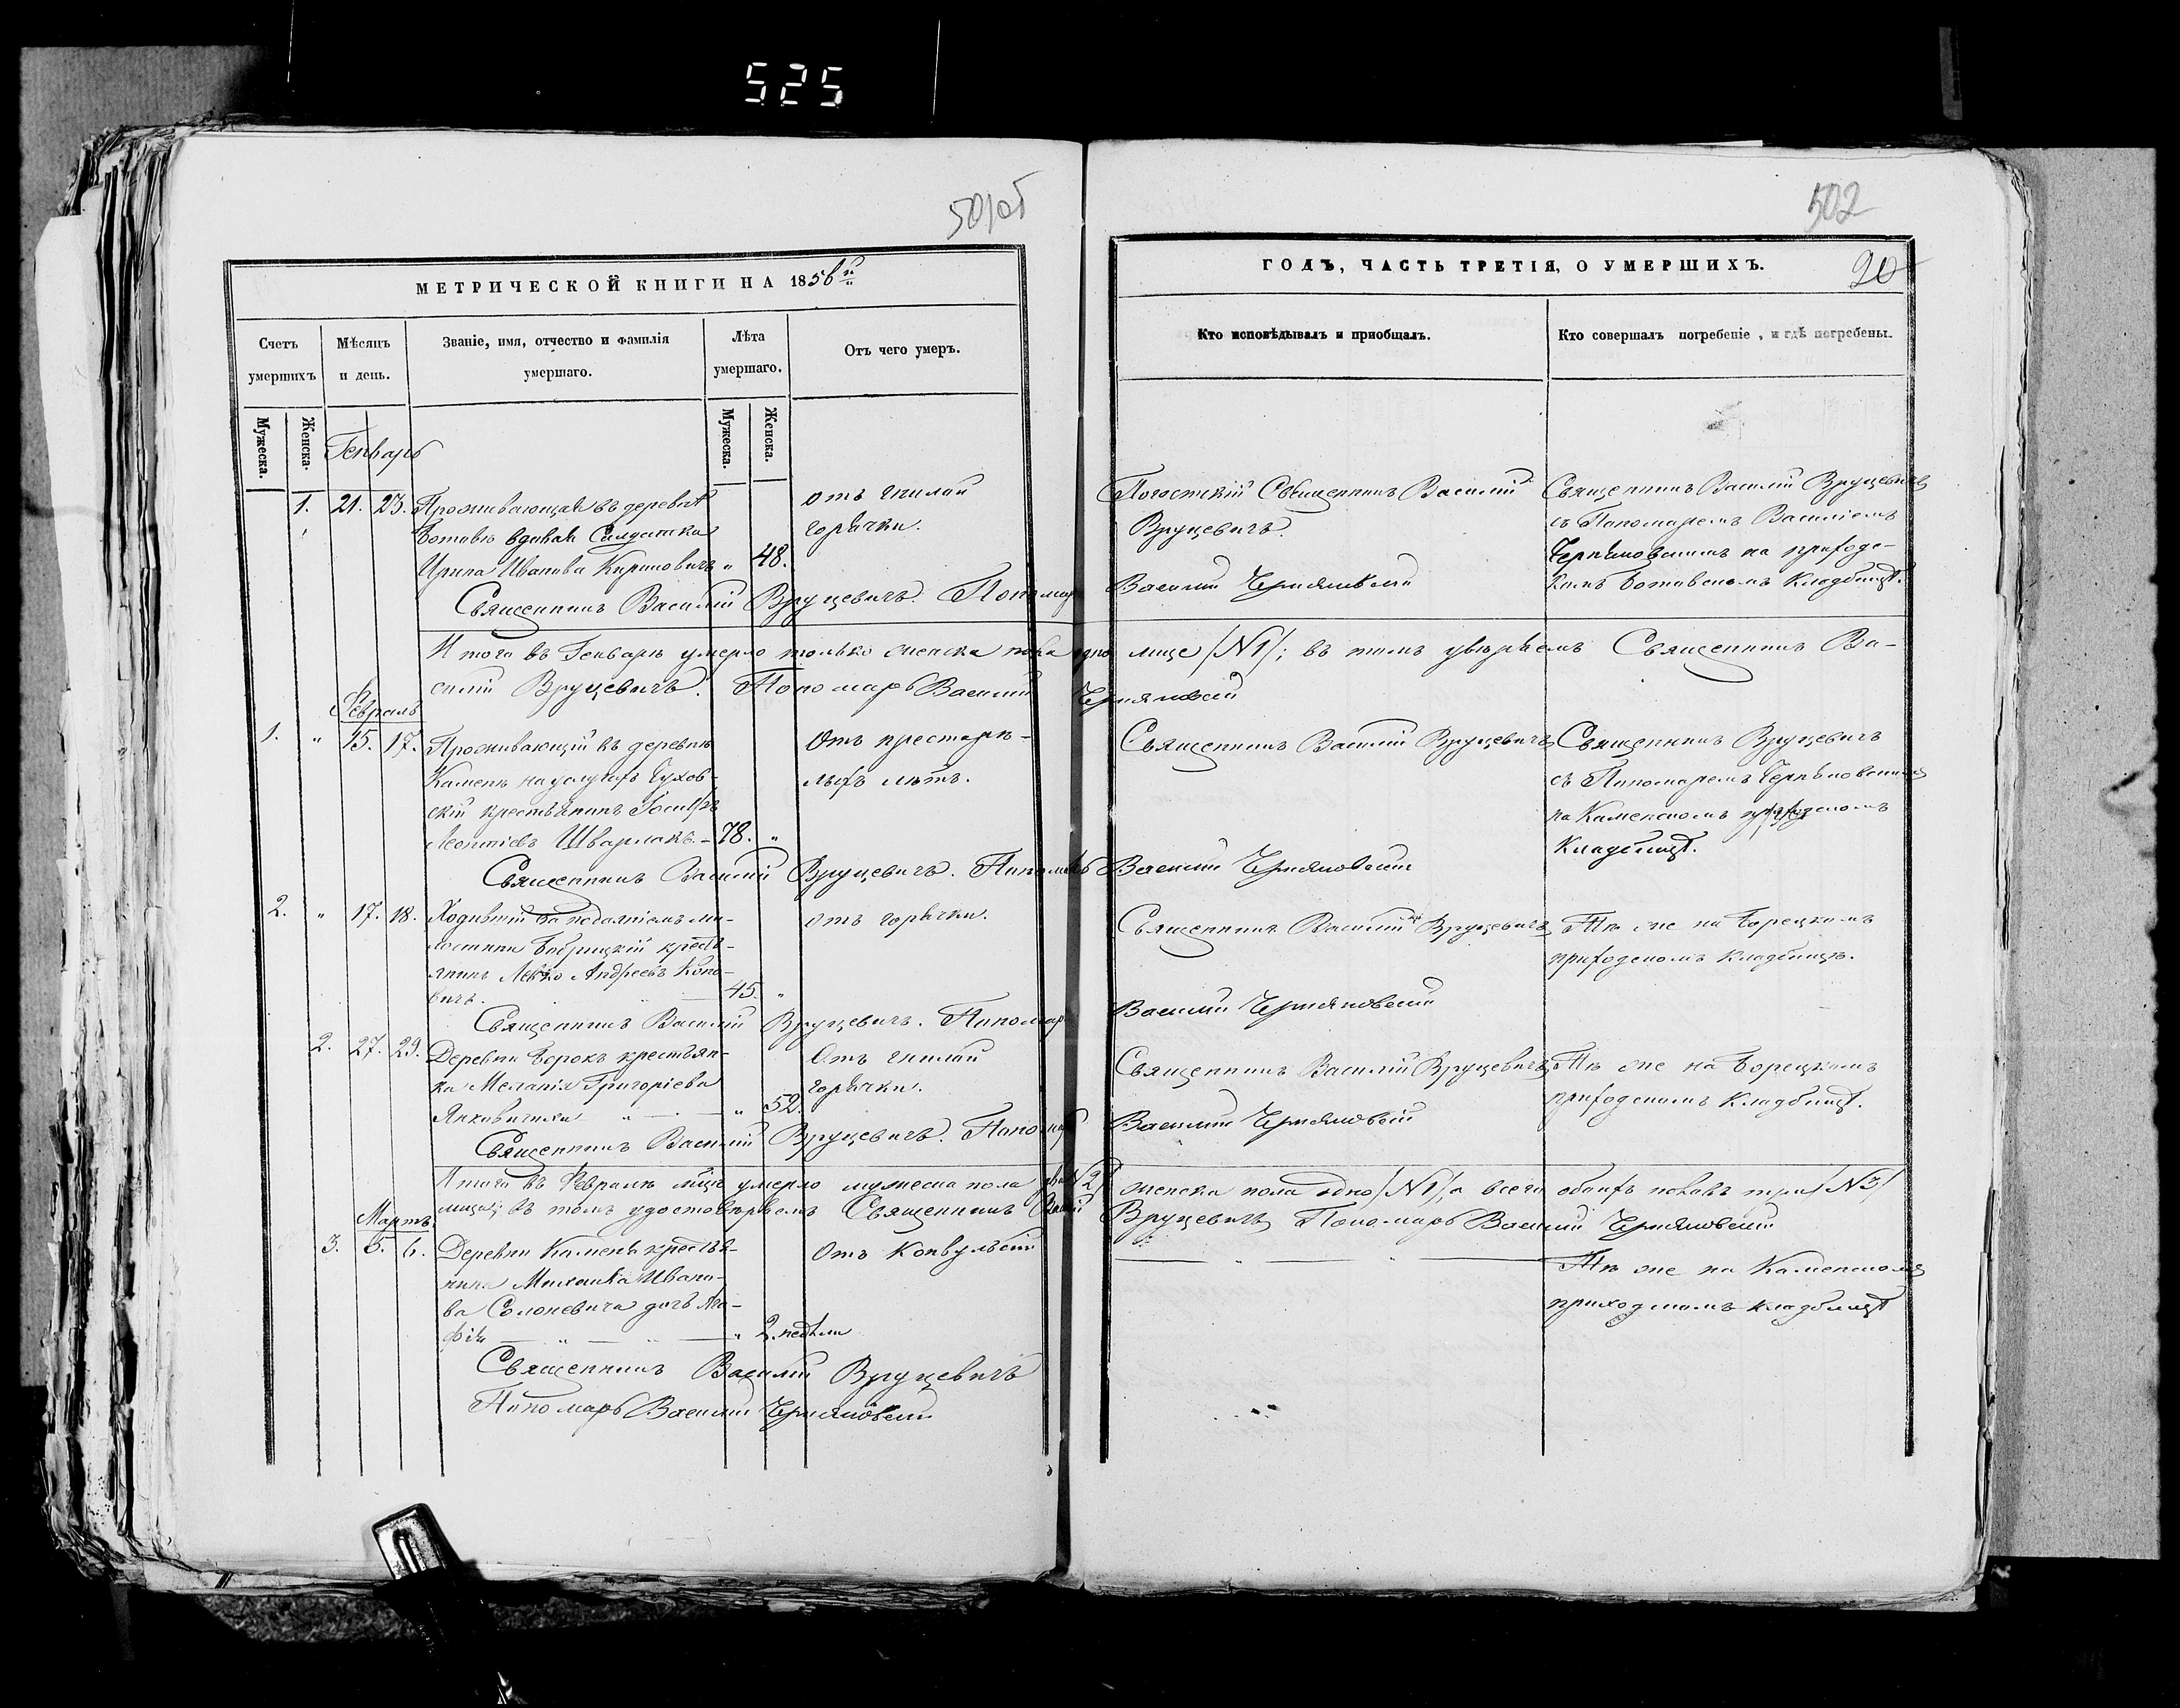 525
501об
502
МЕТРИЧЕСКОЙ КНИГИ НА 1856й
Счетъ умершихъ
Мѣсяцъ и день.
Званіе, имя, отчество и фамилія умершаго.
Лѣта умершаго.
Отъ чего умеръ.
Мужеска.
Женска.
Мужеска.
Женска.
ГОДЪ, ЧАСТЬ ТРЕТІЯ, О УМЕРШИХЪ.
20
Кто исповѣдывалъ и приобщалъ.
Кто совершалъ погребеніе, и гдѣ погребены.
Генварь
1. 21. 23. Проживающая въ деревнѣ
вдовая Солдатка
Ирина Иванова Кириновичъ „ 48.
отъ гнилой
горячки.
Погостскій Священникъ Василій
Вруцевичъ.
Священникъ Василій Вруцевичъ
съ Пономаремъ Василіемъ
Черняковскимъ на приходс-
комъ кладбищѣ.
Священникъ Василій Вруцевичъ. Пономарь Василій Черняковскій
Итого въ Генварѣ умерло только женска пола одно лице /N1/; въ томъ увѣряемъ Священникъ Ва-
силій Вруцевичъ. Пономарь Василій Черняковскій
Февраль
1. „ 15. 17. Проживающій въ деревнѣ
Камень на услугахъ
крестьянинъ Іосифъ
Леонтіевъ Шварлакъ. – 78. „
Отъ престарѣ-
лыхъ лѣтъ.
Священникъ Василій Вруцевичъ
Священникъ Вруцевичъ
съ Пономаремъ Черняковскимъ
на Каменскомъ приходскомъ
кладбищѣ.
Священникъ Василій Вруцевичъ. Пономарь Василій Черняковскій
2. „ 17. 18. Ходившій за подаяніемъ ми-
лостини Бобрицкій кресть-
янинъ Левко Андреевъ Коно-
вичъ. 45. „
отъ горячки.
Священникъ Василій Вруцевичъ
Тѣ же на Борецкомъ
приходскомъ кладбищѣ.
Священникъ Василій Вруцевичъ. Пономарь Василій Черняковскій
2. 27. 29. Деревни Борокъ крестьян-
ка Меланія Григоріева
Янковичика „ 52.
Отъ гнилой
горячки.
Священникъ Василій Вруцевичъ
Тѣ же на Борецкомъ
приходскомъ кладбищѣ.
Священникъ Василій Вруцевичъ. Пономарь Василій Черняковскій
Итого въ Февралѣ мѣсяцѣ умерло мужеска пола два /N2/ женска пола одно /N1/ а всего обоихъ половъ три /N3/
лица; въ томъ удостовѣряемъ Священникъ Василій Вруцевичъ Пономарь Василій Черняковскій
Мартъ
3. 5. 6. Деревни Камень крестья-
нина Михаила Ивано-
ва Солоневича дочь Ага-
фія „ 2. недѣли
Отъ Конвульсіи
Тѣ же на Каменскомъ
приходскомъ кладбищѣ
Священникъ Василій Вруцевичъ
Пономарь Василій Черняковскій